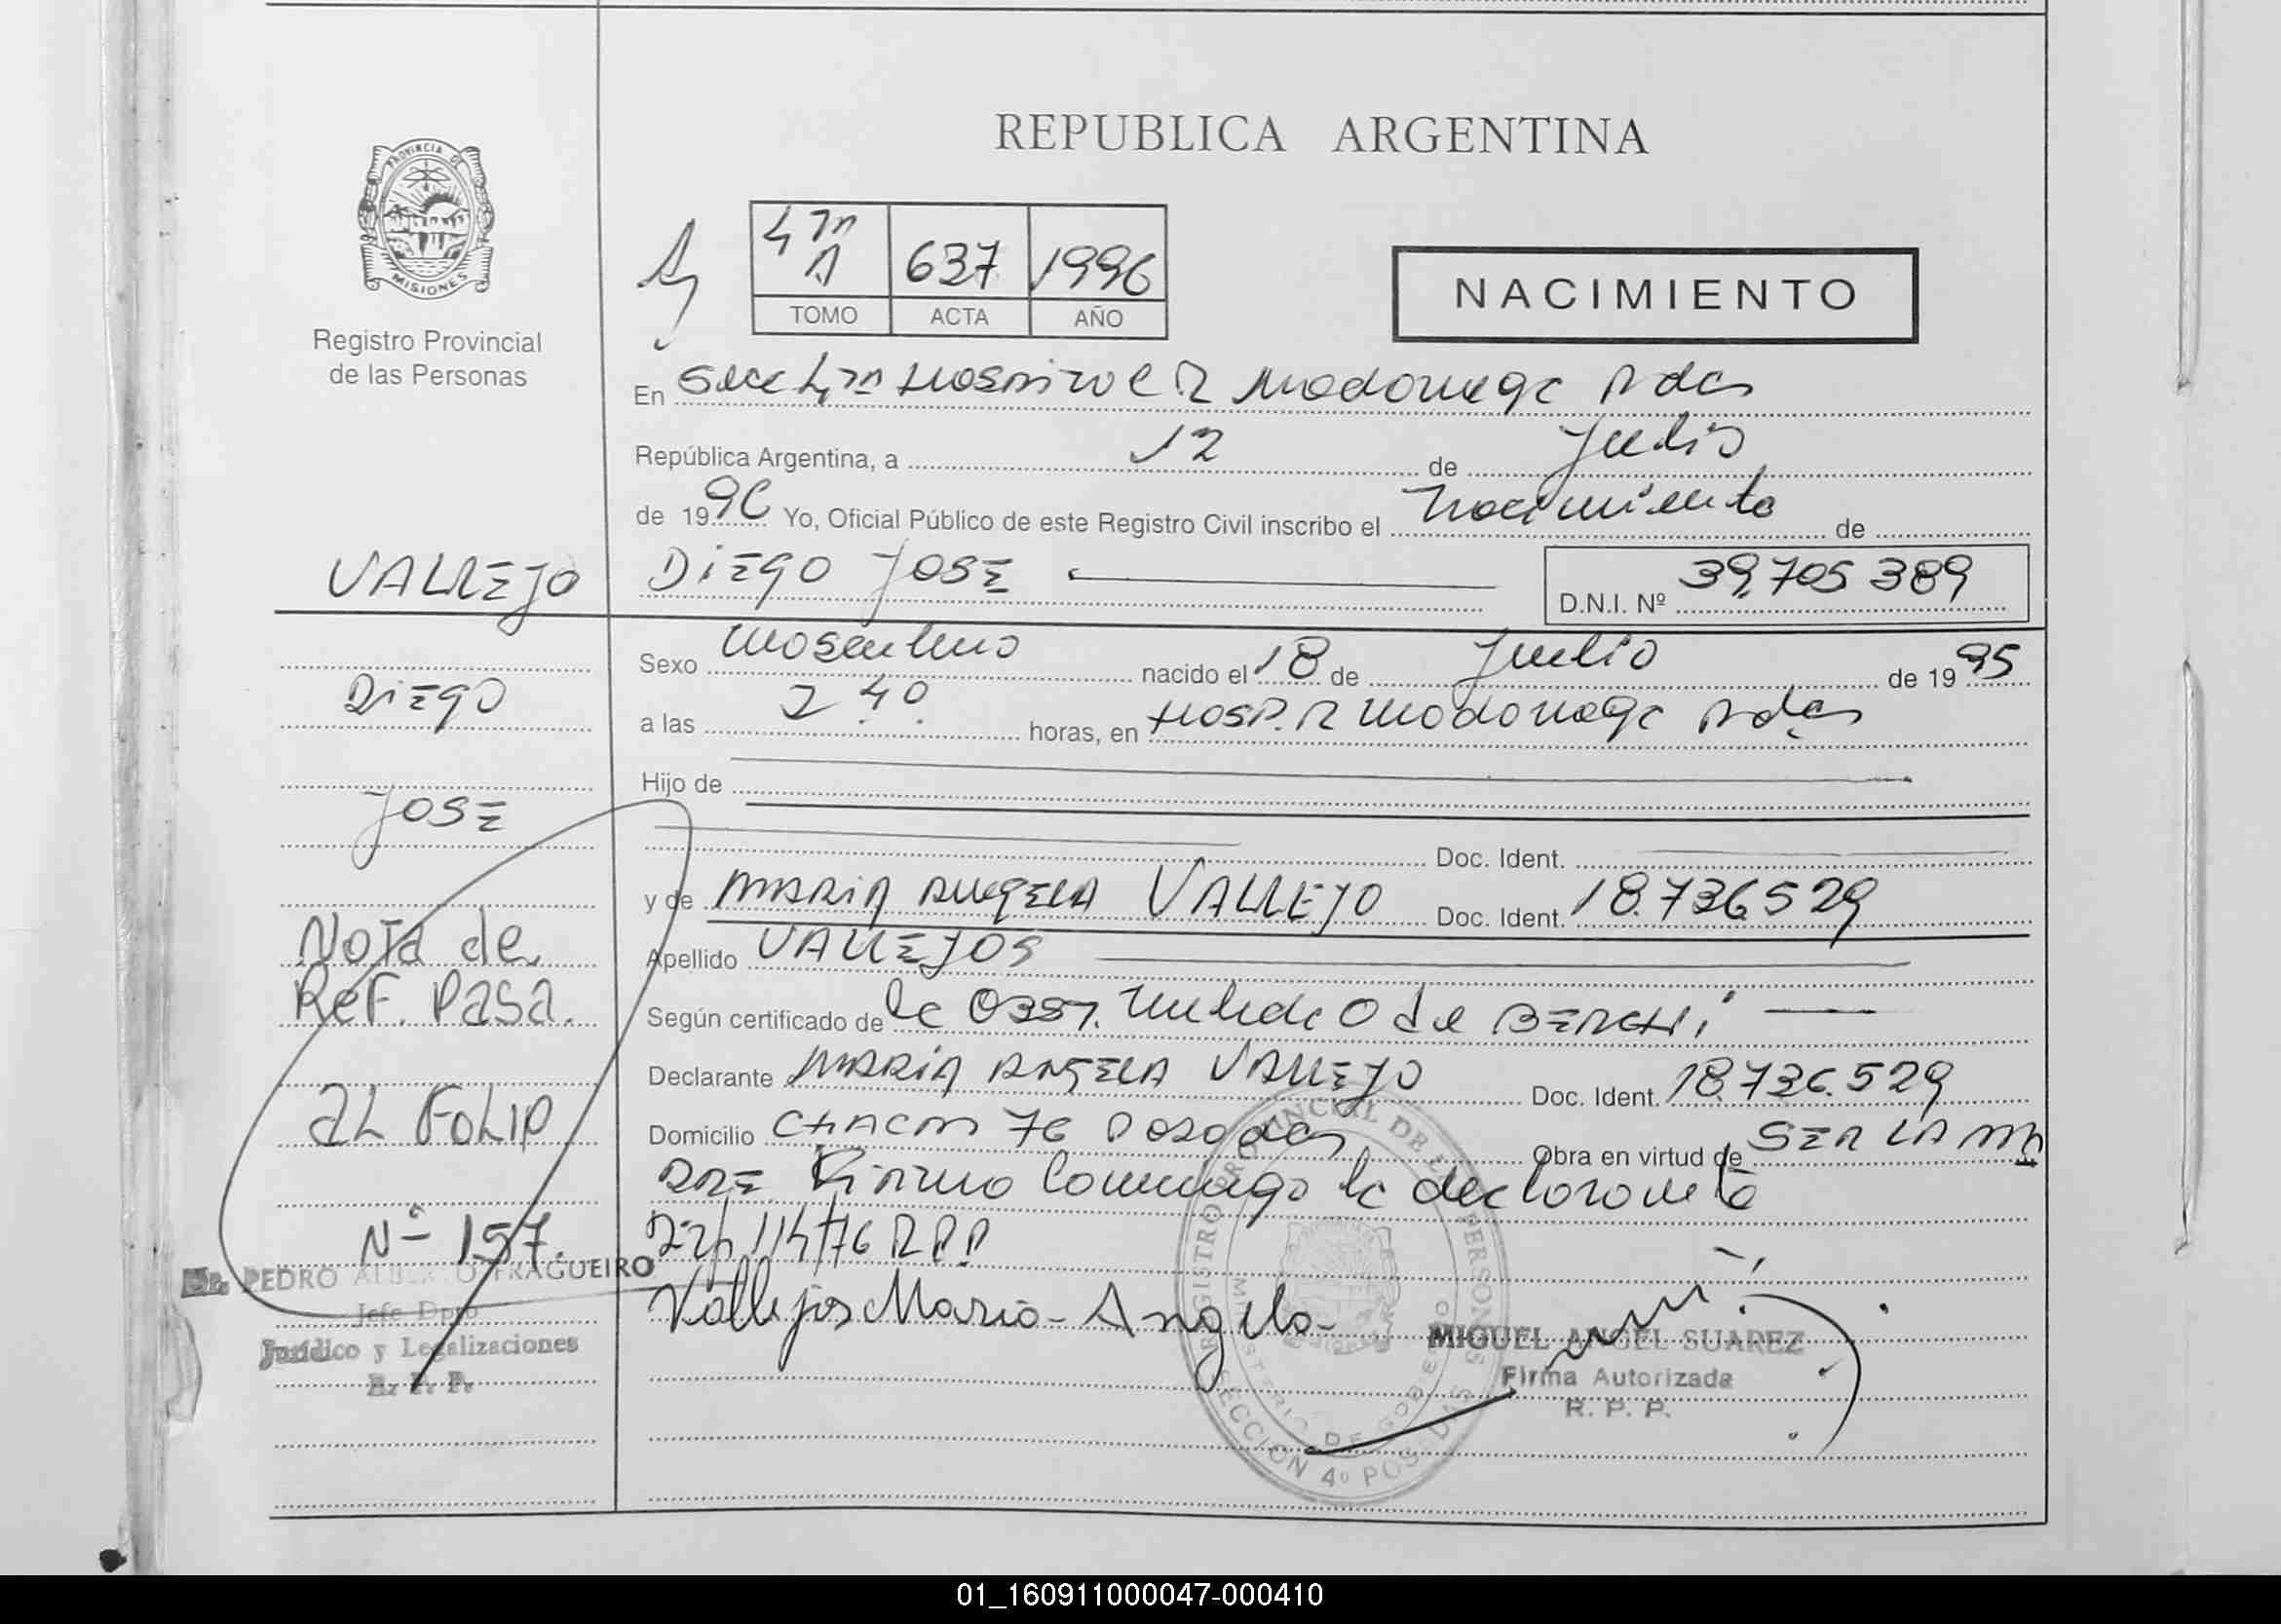 REPUBLICA ARGENTINA
PROVINCIA DE
MISIONES
Registro Provincial
de las Personas
637 1996
TOMO ACTA AÑO
NACIMIENTO
En
República Argentina, a 12 de Julio
de 1996 Yo, Oficial Público de este Registro Civil inscribo el Nacimiento de
VALLEJO
DIEGO JOSE
D.N.I. Nº 39.705 389
Sexo Masculino nacido el 18 de Julio de 1995
DIEGO
a las 2 40 horas, en HOSP. R Madariaga Pdas
Hijo de
JOSE
Doc. Ident.
y de MARIA ANGELA VALLEJO Doc. Ident. 18.736529
Nota de
Apellido VALLEJOS
Ref. Pasa.
Según certificado de la Obst.
Declarante MARIA ANGELA VALLEJO Doc. Ident. 18.736.529
al FOLIO
Domicilio CHACO 76 Posadas Obra en virtud de SER LA MA
DRE Firmo Conmigo la declarante
Nº 157.
Dr. PEDRO ALBERTO FRAGUEIRO
Jefe Dpto
Jurídico y Legalizaciones
R. P. P.
Vallejos Maria Angela
REGISTRO PROVINCIAL DE LAS PERSONAS
MINISTERIO DE GOBIERNO
SECCION 4º POSADAS
MIGUEL ANGEL SUAREZ
Firma Autorizada
R. P. P.
01_160911000047-000410